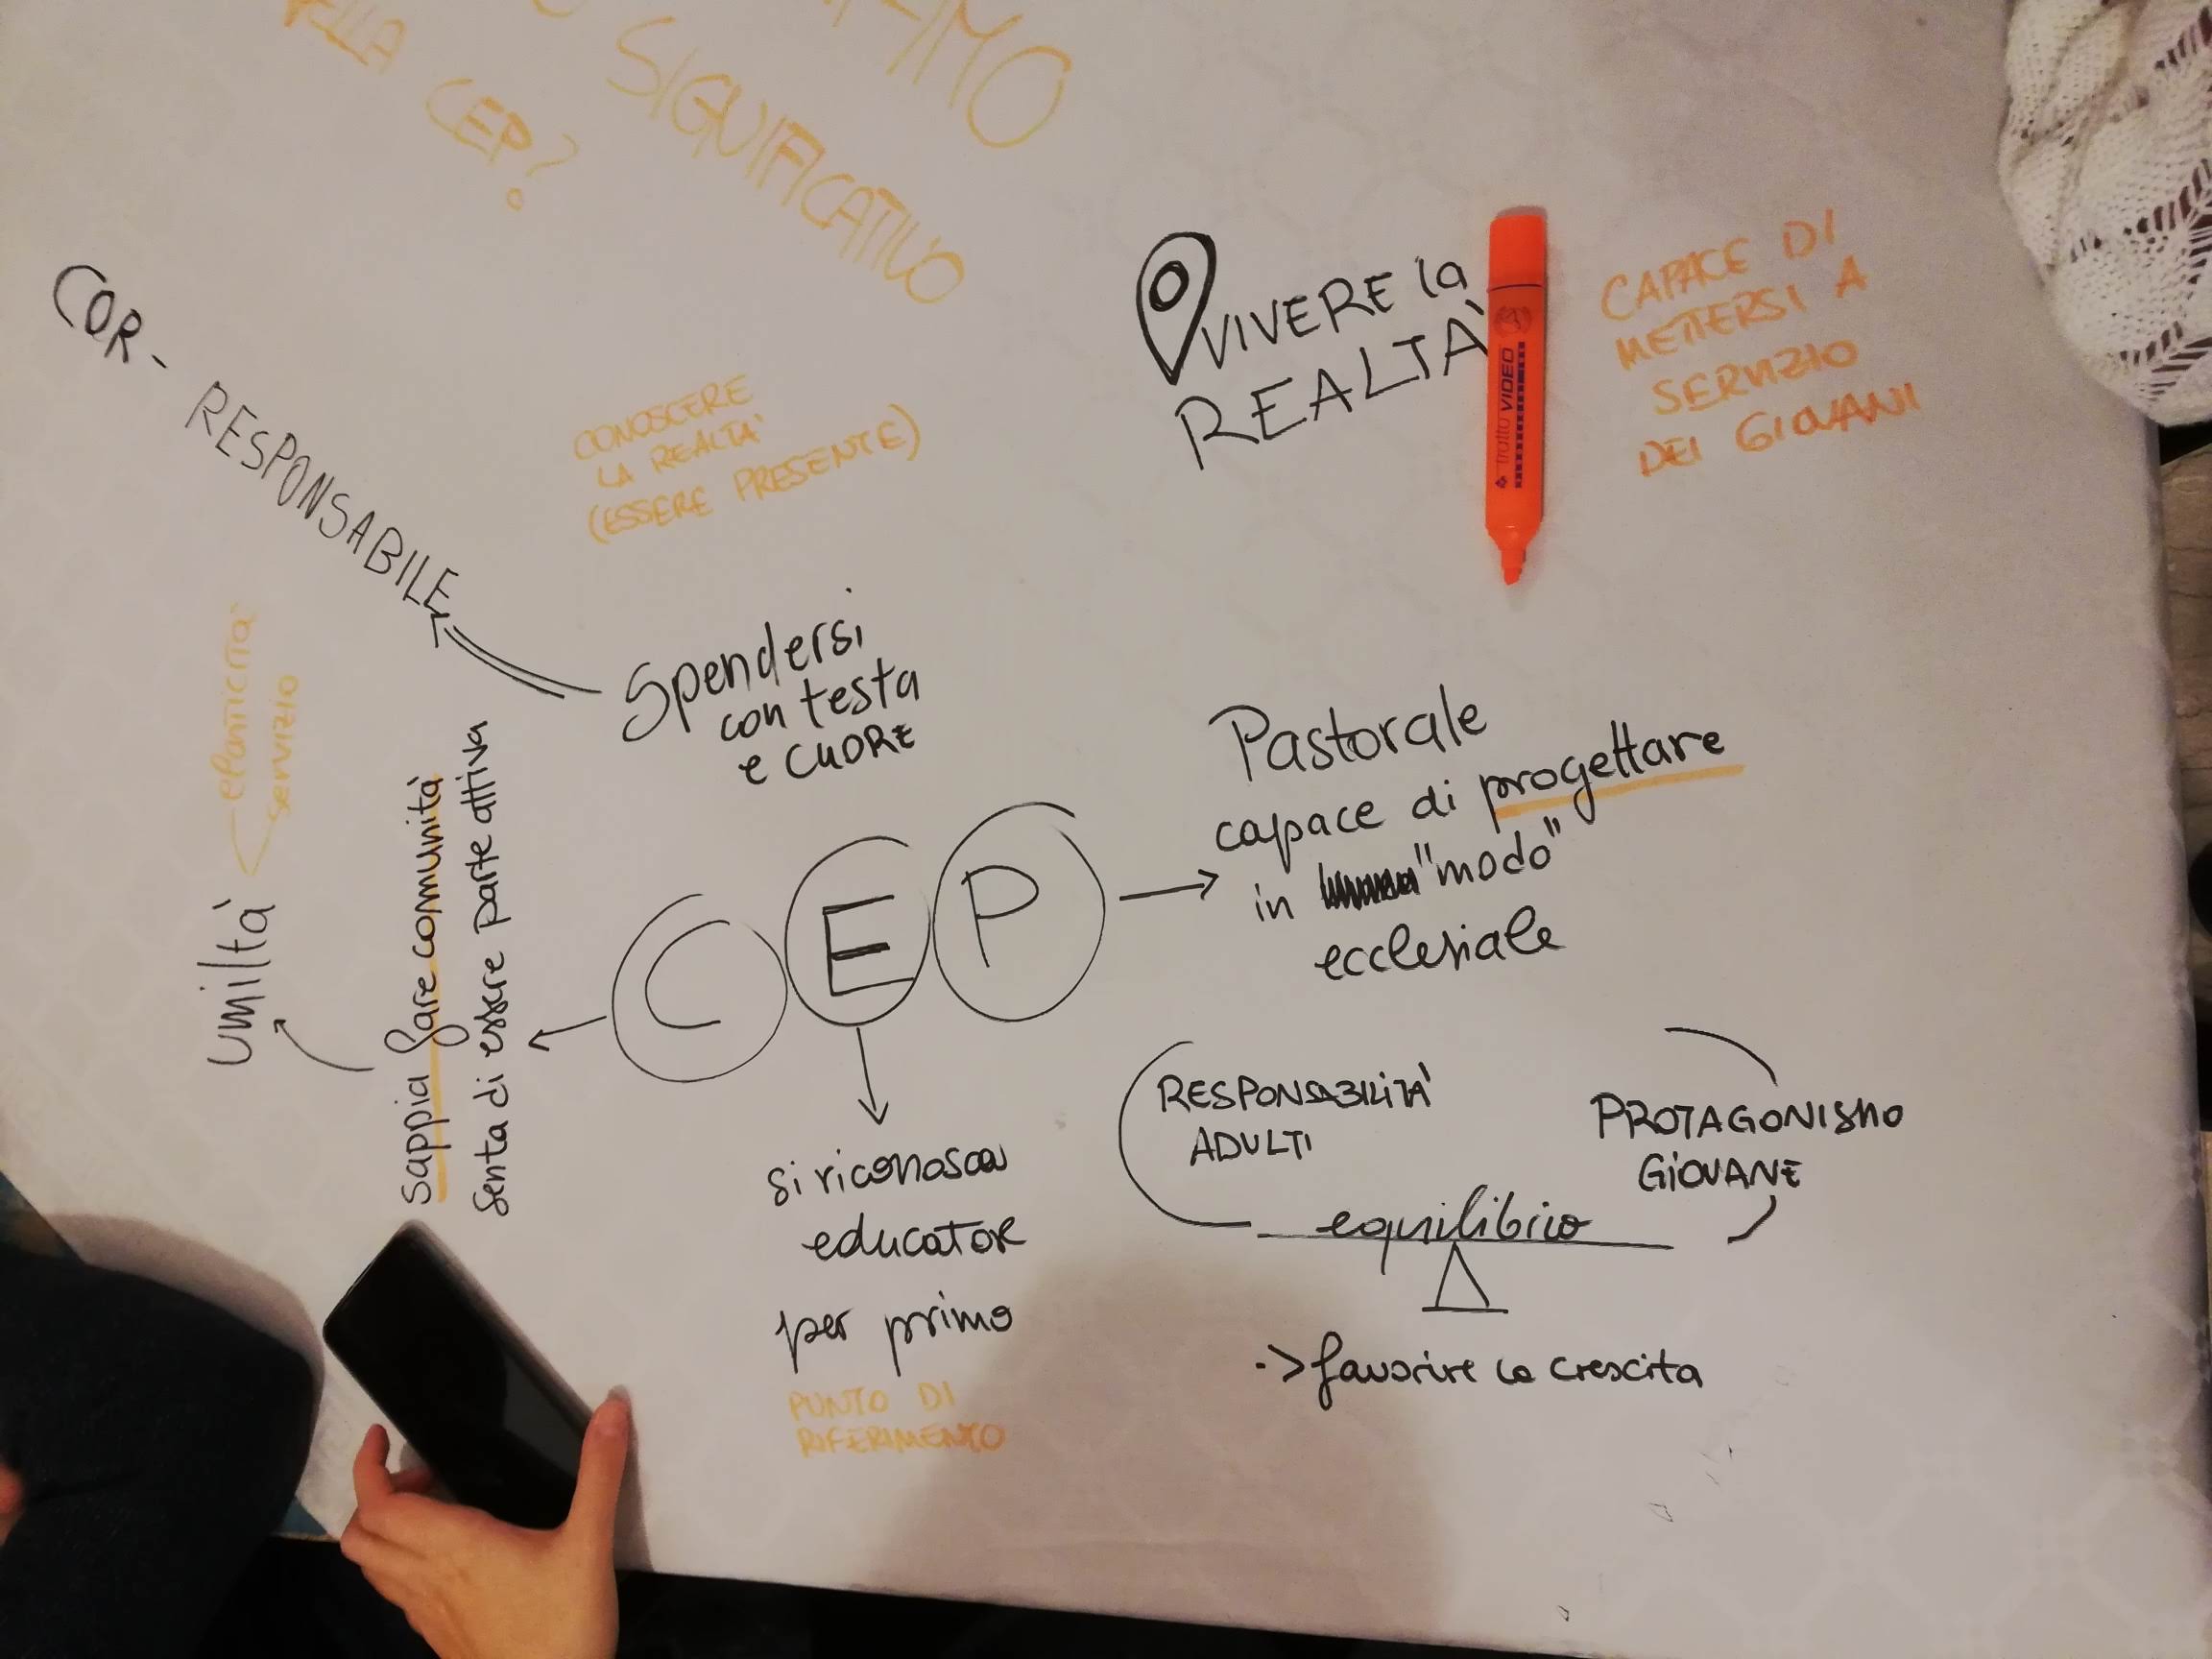 SIGNIFICATIVO
CEP?
COR-RESPONSABILE
CONOSCERE
LA REALTA'
(ESSERE PRESENTE)
VIVERE la
REALTÀ
tratto VIDEO
CAPACE DI
METTERSI A
SERVIZIO
DEI GIOVANI
Spendersi
con testa
e CUORE
servizio
umiltà
Sappia fare comunità
Senta di essere parte attiva
CEP
Pastorale
capace di progettare
in "modo"
ecclesiale
si riconosca
educatore
per primo
PUNTO DI
RIFERIMENTO
RESPONSABILITA'
ADULTI
PROTAGONISMO
GIOVANE
equilibrio
-> favorire la crescita